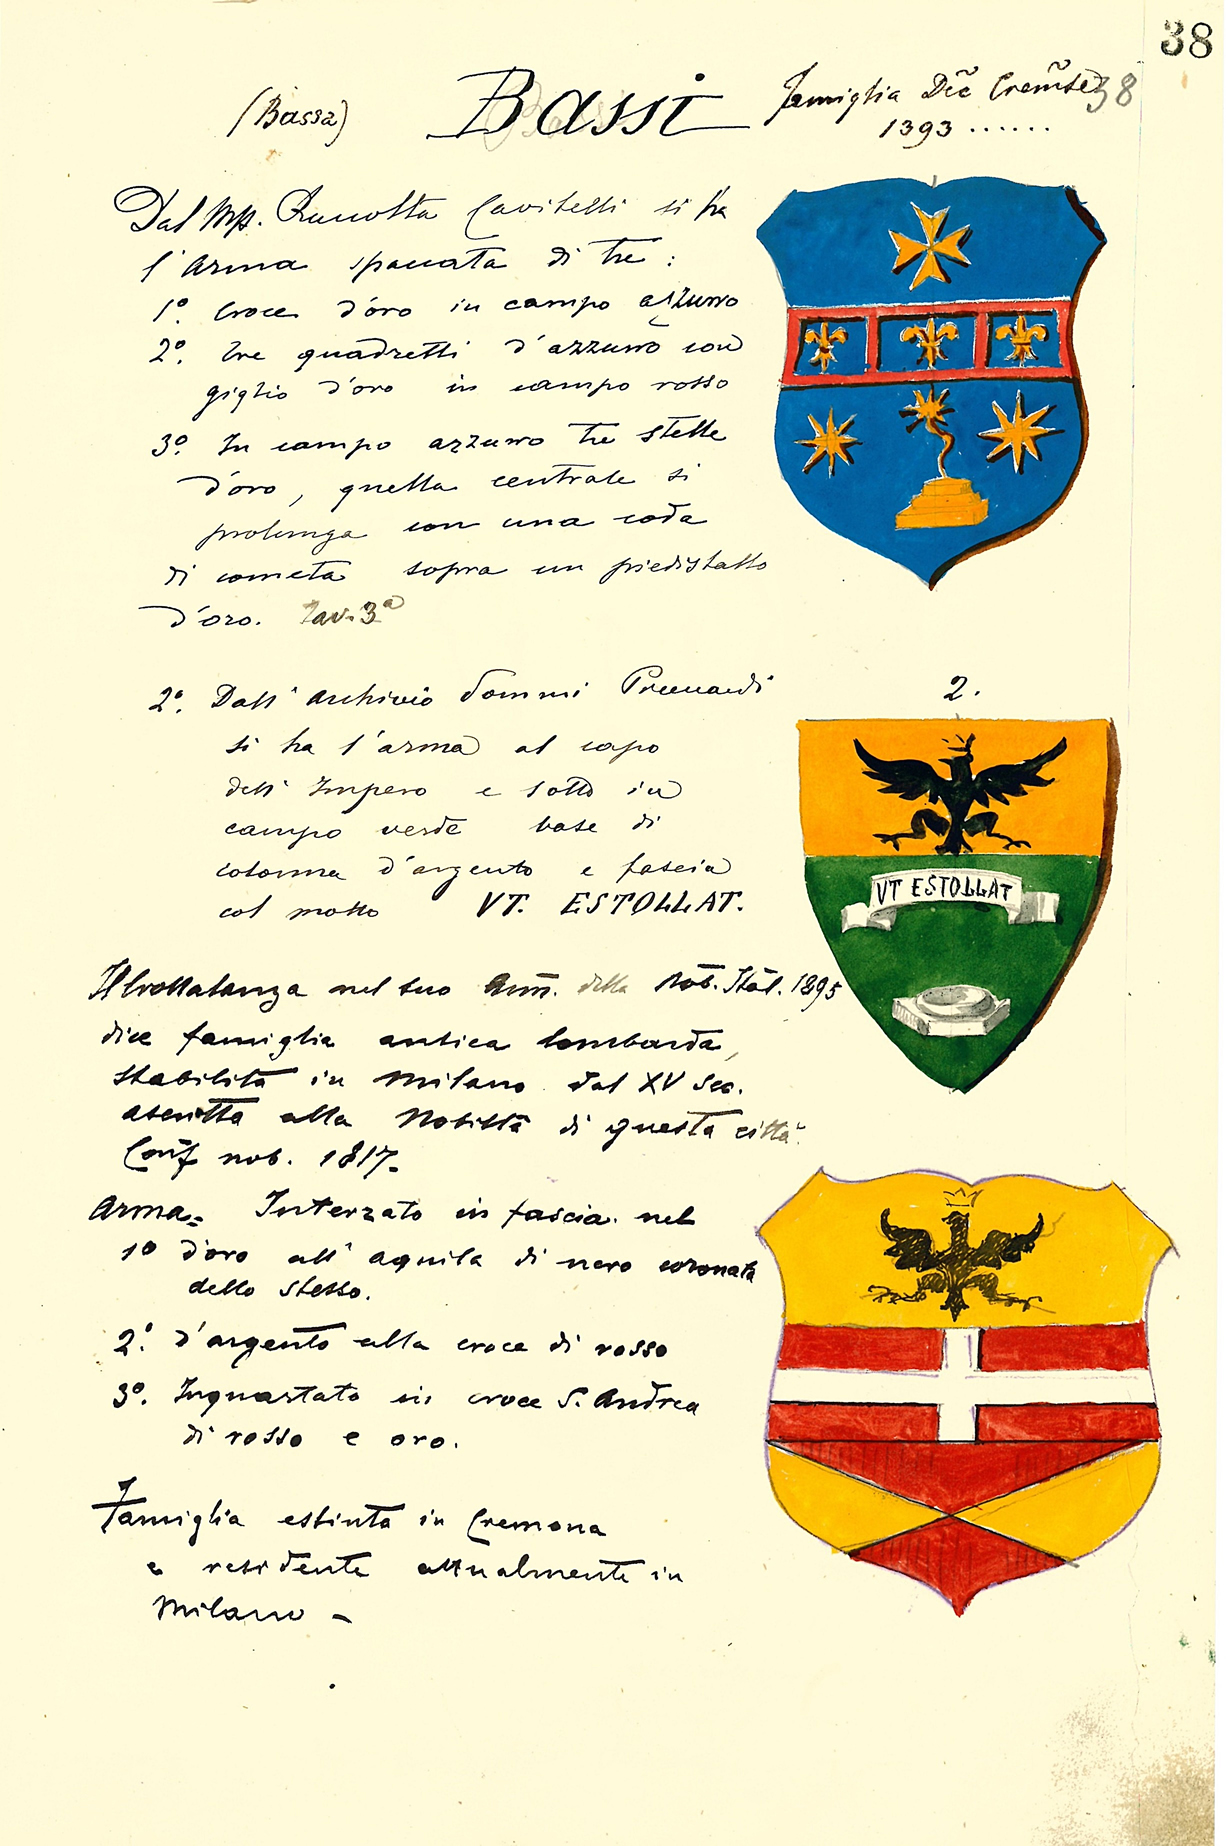 38
(Bassa)
Bassi
famiglia Dec̃ Crem̃se 38
1393 ......
Dal Mss. Raccolta Cavitelli si ha
l'arma spaccata di tre:
1º. Croce d'oro in campo azzurro
2º. tre quadretti d'azzurro con
giglio d'oro in campo rosso
3º. In campo azzurro tre stelle
d'oro, quella centrale si
prolunga con una coda
di cometa sopra un piedistallo
d'oro. Tav. 3ª
2º. Dall' archivio Sommi Picenardi
si ha l'arma al capo
dell' Impero e sotto in
campo verde base di
colonna d'argento e fascia
col motto VT. ESTOLLAT.
2.
VT ESTOLLAT
Il Crollalanza nel suo Ann. della Nob. Ital. 1895
dice famiglia antica lombarda,
stabilita in Milano dal XV Sec.
ascritta alla Nobiltà di questa città.
Conf nob. 1817.
Arma= Interzato in fascia. nel
1º d'oro all' aquila di nero coronata
dello stesso.
2º. d'argento alla croce di rosso
3º. Inquartato in croce S. Andrea
di rosso e oro.
Famiglia estinta in Cremona
e residente attualmente in
Milano -